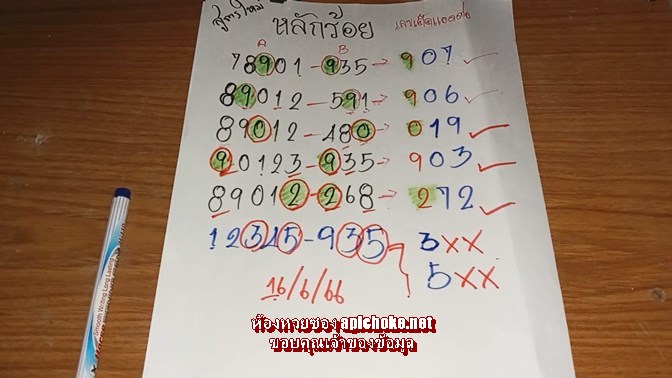 สูตรใหม่
หลักร้อย
A B
78901-935→ 907 ✓
89012-591→ 906 ✓
89012-480→ 019 ✓
90123-935→ 903 ✓
89012-268→ 272 ✓
12345-935 3XX
5XX
16/6/66
ห้องหวยซอง apichoke.net
ขอบคุณเจ้าของข้อมูล
Smooth Writing Long Lasting